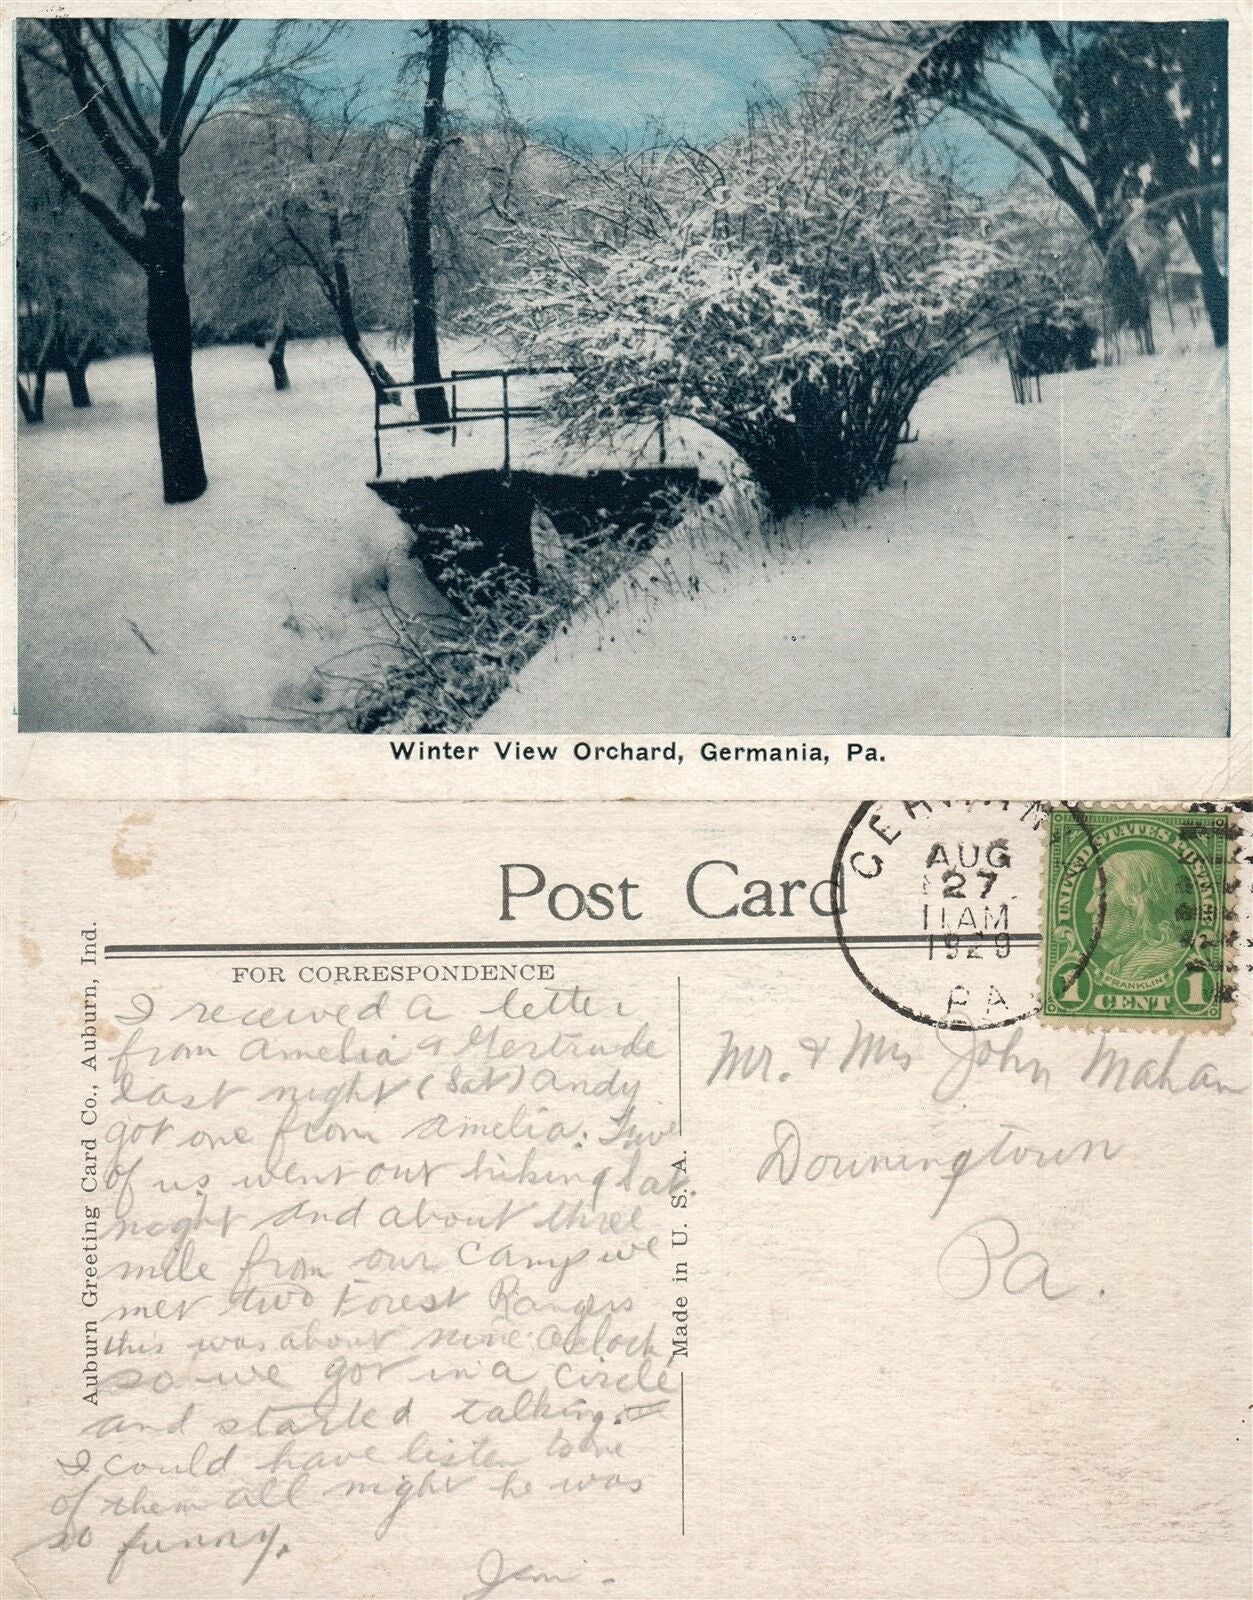 Winter View Orchard, Germania, Pa.
Post Card
AUG
27
11 AM
1929
PA
UNITED STATES POSTAGE
FRANKLIN
1 CENT 1
FOR CORRESPONDENCE
Auburn Greeting Card Co., Auburn, Ind.
Made in U. S. A.
I received a letter
from Amelia & Gertrude
last night (Sat) Andy
got one from Amelia. Five
of us went out hiking last
night and about three
mile from our Camp we
met two Forest Rangers
this was about nine oclock
so we got in a circle
and started talking.
I could have listen to one
of them all night he was
so funny.
Mr. & Mrs John Mahan
Downingtown
Pa.